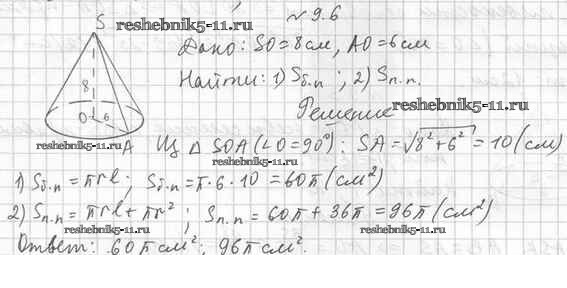 № 9.6
S
reshebnik5-11.ru
Дано: SO = 8 см, AO = 6 см
Найти: 1) Sб.п ; 2) Sп.п.
8
Решение
reshebnik5-11.ru
O 6
reshebnik5-11.ru
A
Из Δ SOA (∠O = 90°): SA = √8² + 6² = 10 (см)
1) Sб.п = πrl; Sб.п = π·6·10 = 60π (см²)
2) Sп.п = πrl + πr² ; Sп.п = 60π + 36π = 96π (см²)
reshebnik5-11.ru
Ответ: 60π см²; 96π см².